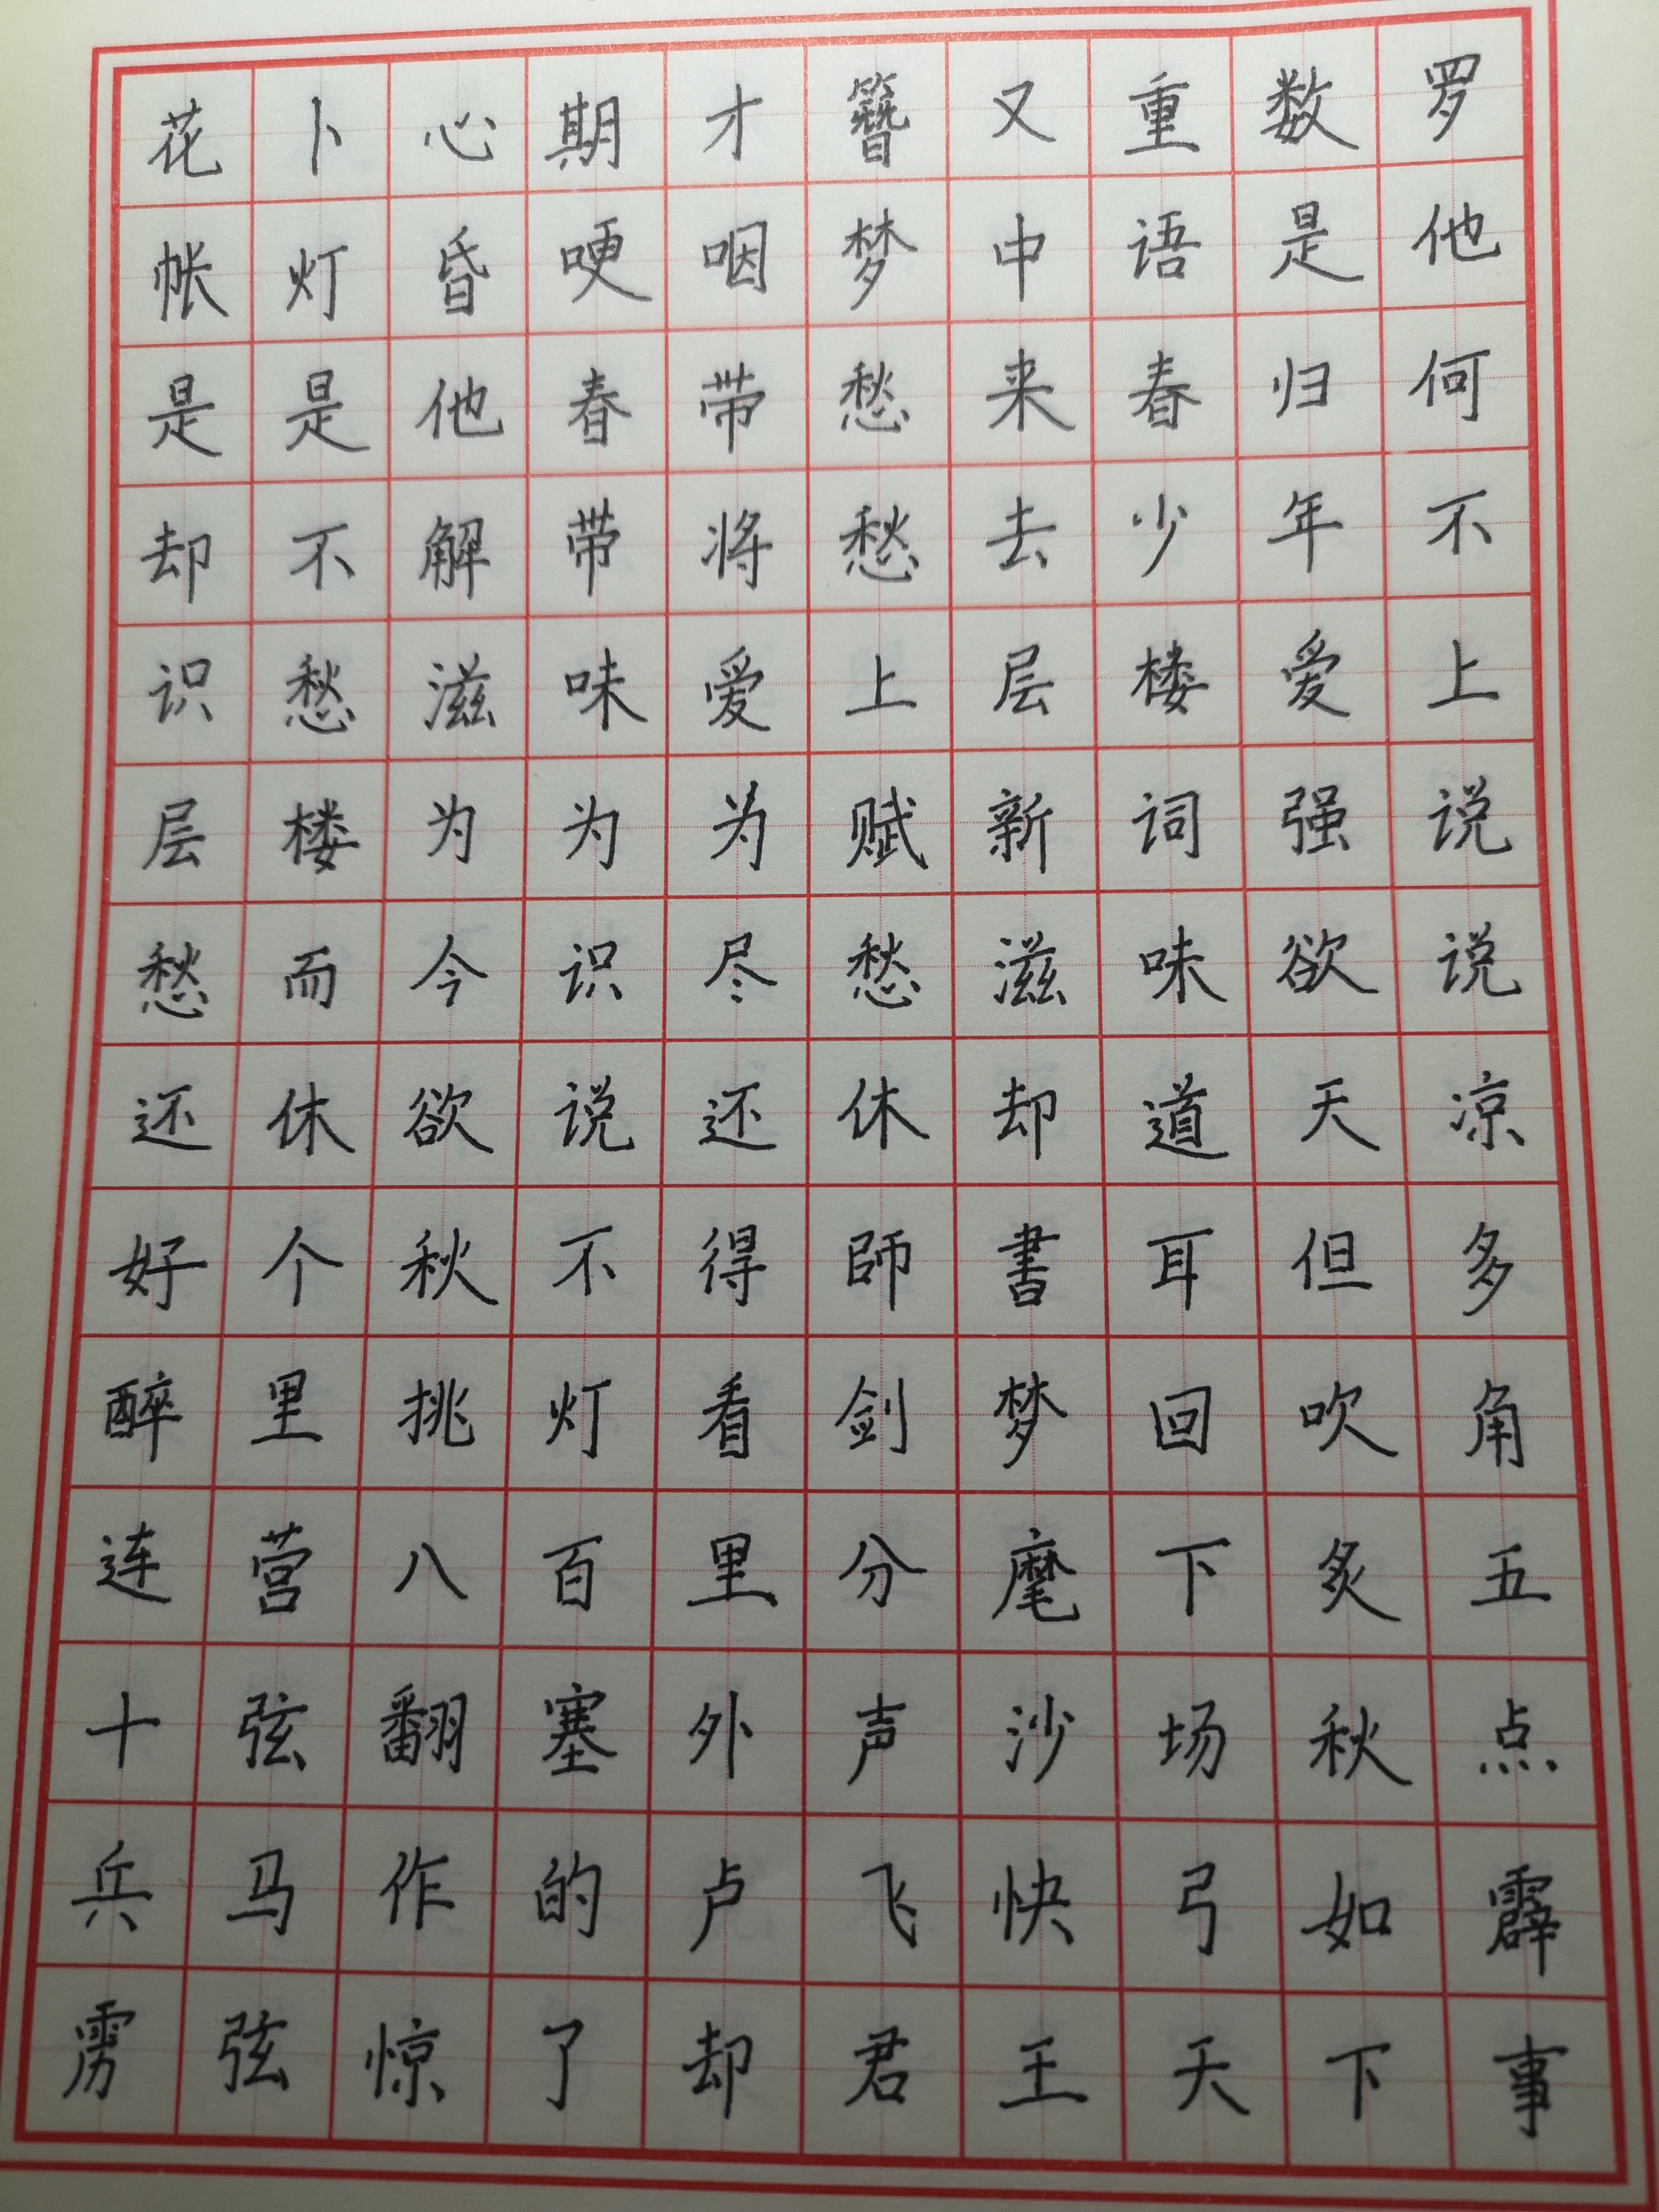 花卜心期才簪又重数罗
帐灯昏哽咽梦中语是他
是是他春带愁来春归何
却不解带将愁去少年不
识愁滋味爱上层楼爱上
层楼为为为赋新词强说
愁而今识尽愁滋味欲说
还休欲说还休却道天凉
好个秋不得師書耳但多
醉里挑灯看剑梦回吹角
连营八百里分麾下炙五
十弦翻塞外声沙场秋点
兵马作的卢飞快弓如霹
雳弦惊了却君王天下事